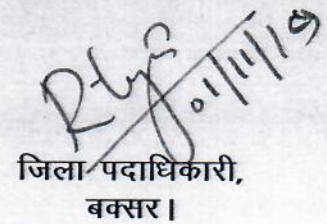 01/11/19
जिला पदाधिकारी,
बक्सर।